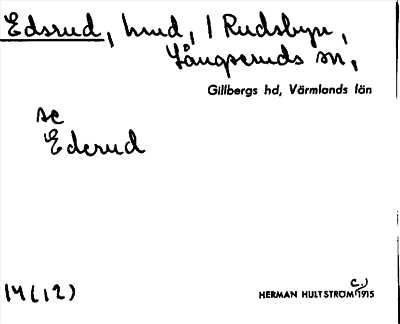 Edsrud, hmd, / Rudsbyn,
Långseruds sn,
Gillbergs hd, Värmlands län
se
Ederud
14(12)
HERMAN HULTSTRÖM c.) 1915